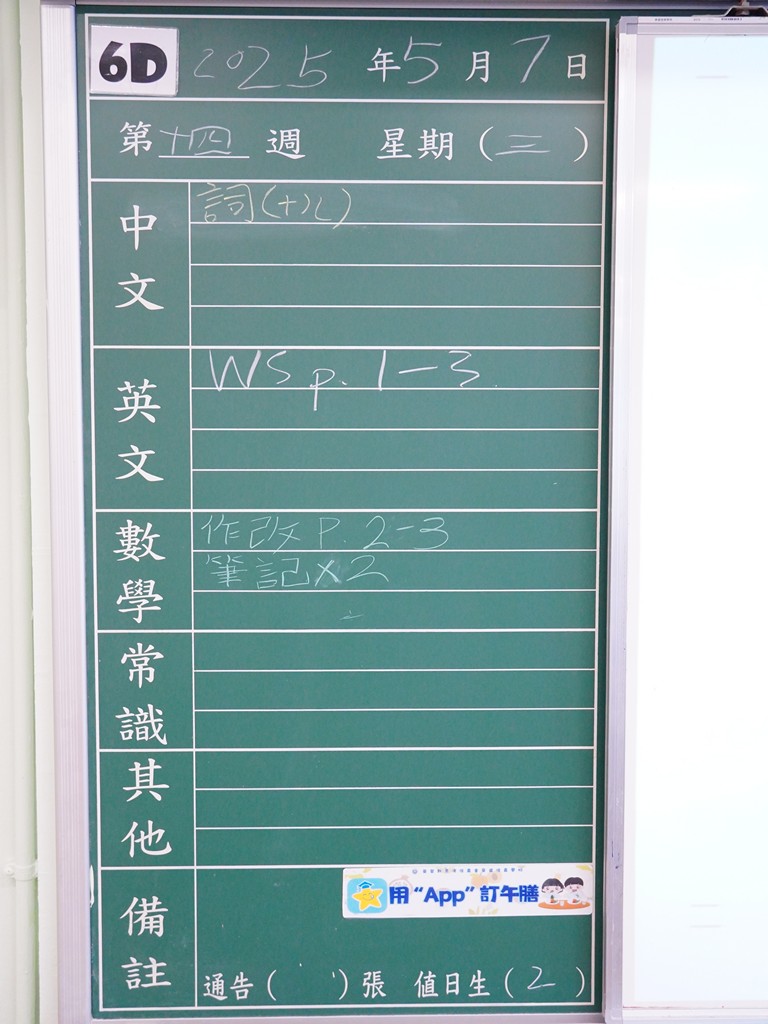 6D 2025 年 5 月 7 日
第 十四 週 星期 ( 三 )
中文
詞(十)L)
英文
WS p. 1-3
數學
作改 P. 2-3
筆記 x2
常識
其他
備註
用 “App” 訂午膳
通告 ( ) 張 值日生 ( 2 )